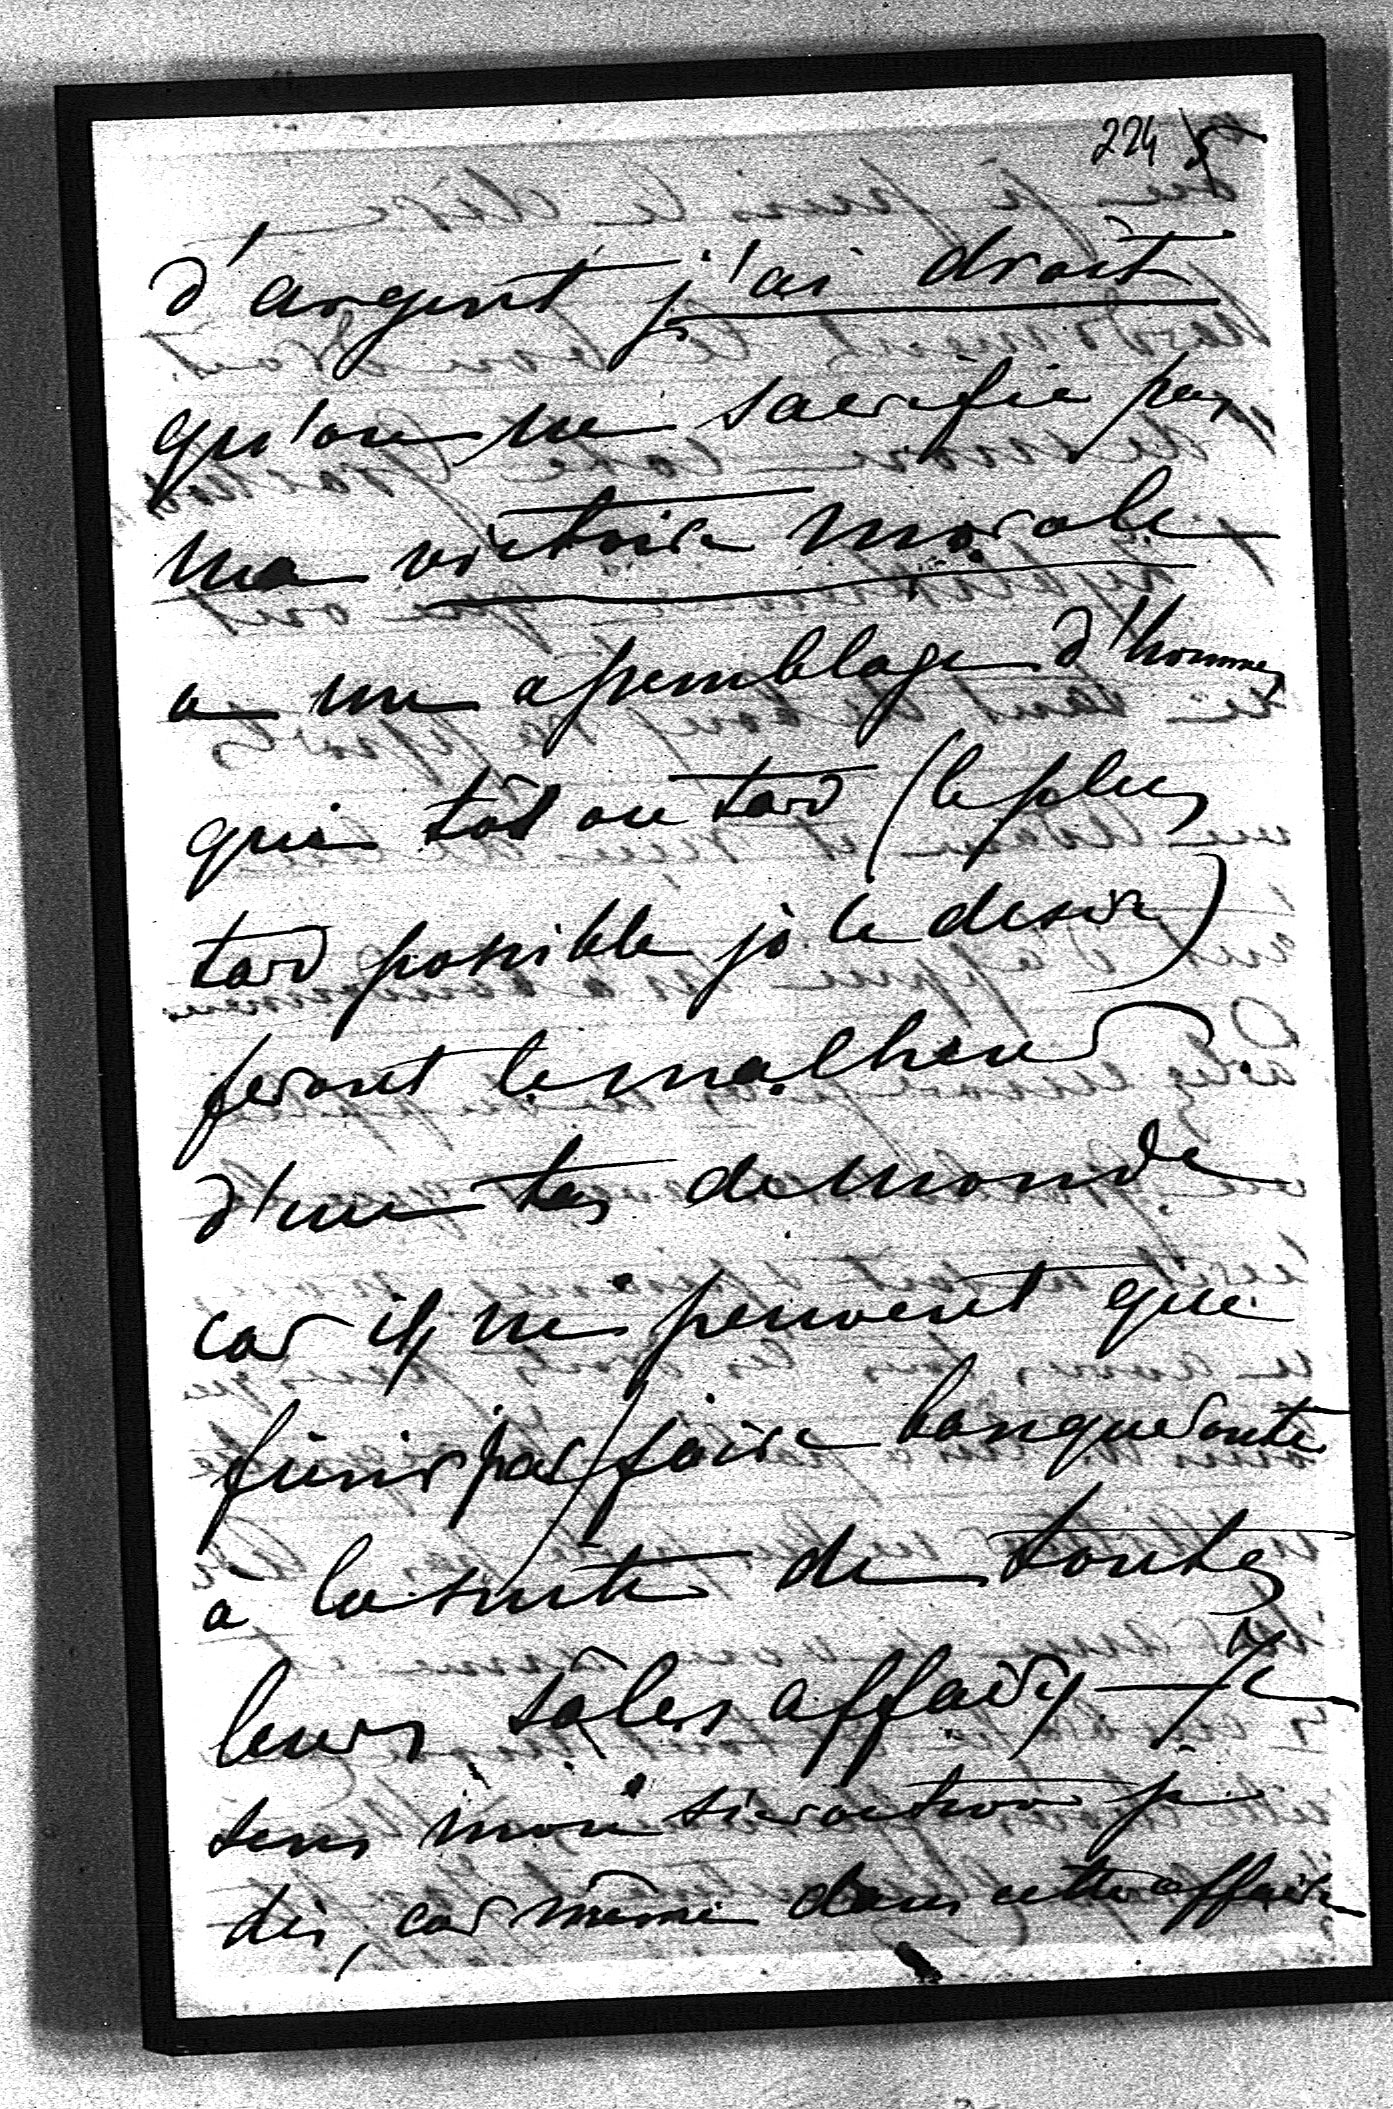 224 5
d'argent j'ai droit
qu'on ne sacrifie pas
ma victoire morale
a un assemblage d'hommes
qui tôt ou tard (le plus
tard possible je le desire)
feront le malheur
d'un tas de monde
car ils ne peuvent que
finir par faire banqueroute
a la suite de toutes
leurs sâles affaires — Je
sens mon
dis, car même dans cette affaire